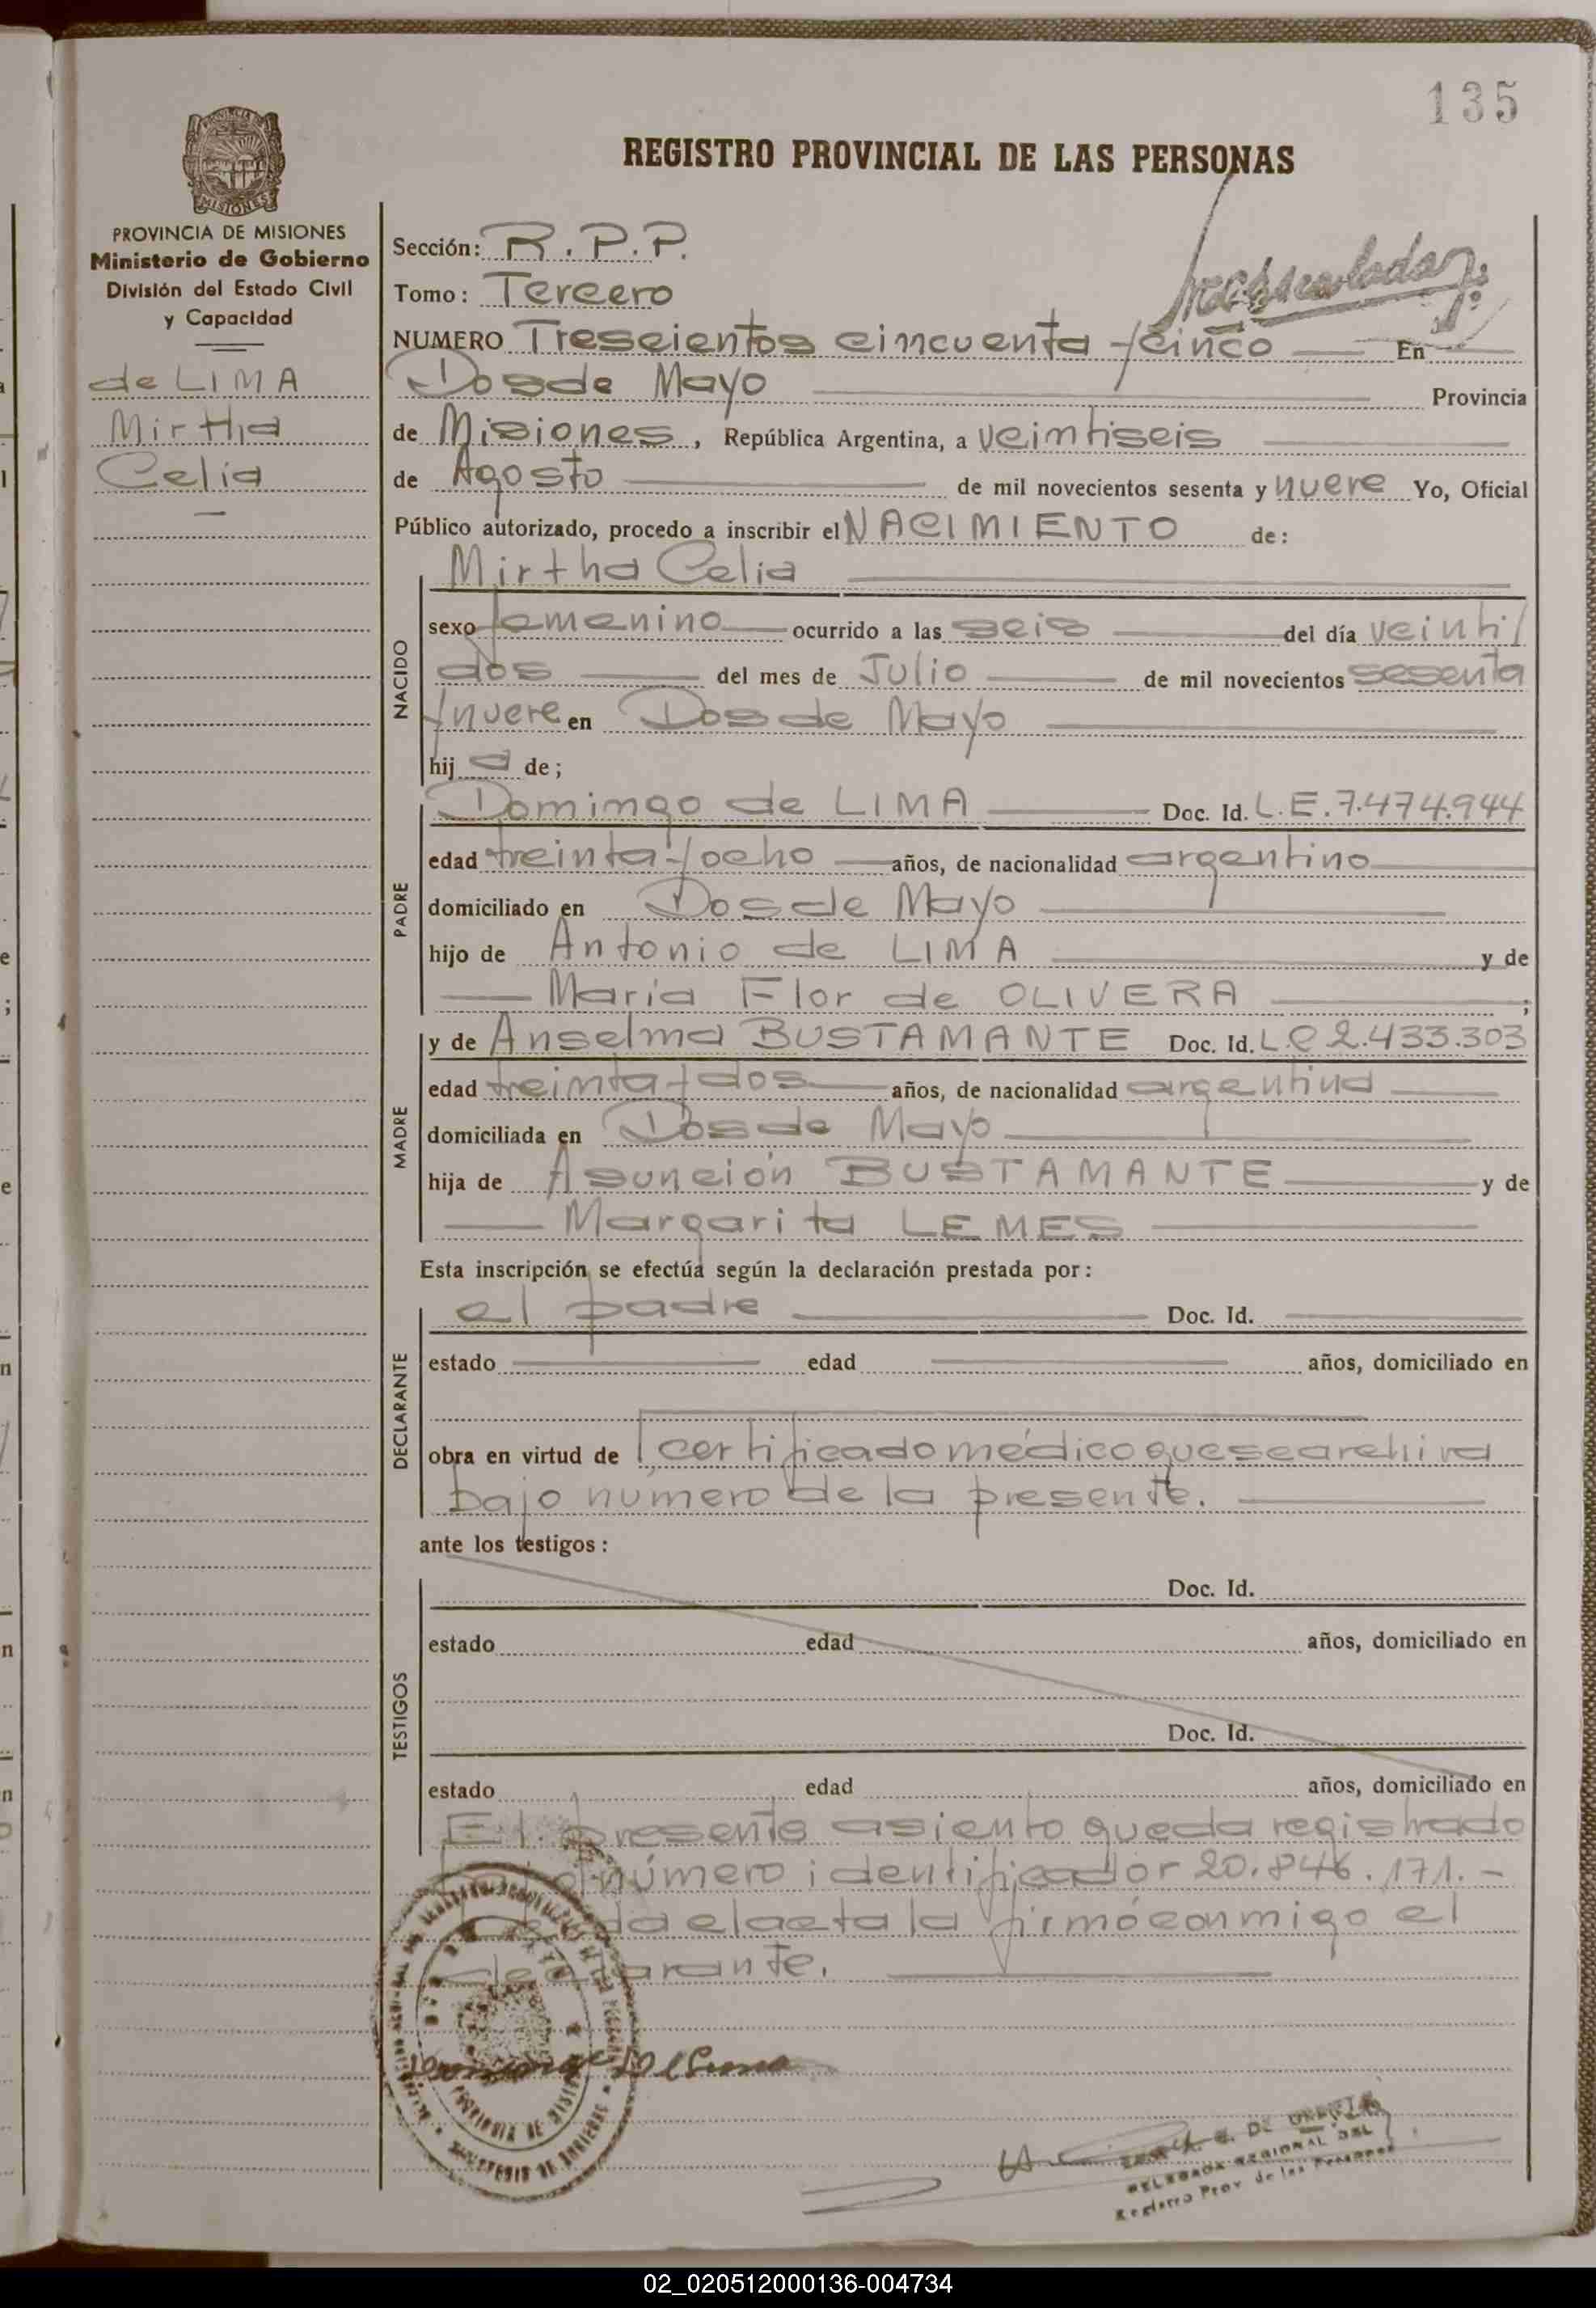 135
REGISTRO PROVINCIAL DE LAS PERSONAS
PROVINCIA DE MISIONES
Ministerio de Gobierno
División del Estado Civil
y Capacidad
de LIMA
Mirtha
Celia
Sección: R.P.P.
Tomo: Tercero
NUMERO Trescientos cincuenta y cinco En
Dos de Mayo Provincia
de Misiones, República Argentina, a veintiseis
de Agosto de mil novecientos sesenta y nueve Yo, Oficial
Público autorizado, procedo a inscribir el NACIMIENTO de:
NACIDO
Mirtha Celia
sexo femenino ocurrido a las seis del día veinti
dos del mes de Julio de mil novecientos sesenta
y nueve en Dos de Mayo
hij a de;
PADRE
Domingo de LIMA Doc. Id. L.E. 7.474.944
edad treinta y ocho años, de nacionalidad argentino
domiciliado en Dos de Mayo
hijo de Antonio de LIMA y de
María Flor de OLIVERA ;
MADRE
y de Anselma BUSTAMANTE Doc. Id. L.C 2.433.303
edad treinta y dos años, de nacionalidad argentina
domiciliada en Dos de Mayo
hija de Asunción BUSTAMANTE y de
Margarita LEMES
Esta inscripción se efectúa según la declaración prestada por:
DECLARANTE
el padre Doc. Id.
estado edad años, domiciliado en
obra en virtud de certificado médico que se archiva
bajo número de la presente.
ante los testigos:
TESTIGOS
Doc. Id.
estado edad años, domiciliado en
Doc. Id.
estado edad años, domiciliado en
El presente asiento queda registrado
número identificador 20.846.171.-
el acta la firmó conmigo el
declarante.
PROVINCIA DE MISIONES
MINISTERIO DE GOBIERNO
DELEGADA REGIONAL DEL
Registro Prov. de las Personas
02_020512000136-004734